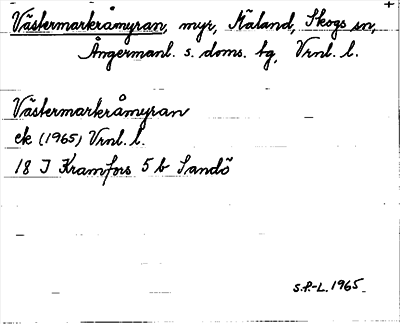 Västermarkråmyran, myr, Mäland, Skogs sn,
Ångermanl. s. doms. bg, Vrnl. l.
Västermarkråmyran
ek (1965) Vrnl. l.
18 J Kramfors 5 b Sandö
S.P.-L. 1965.